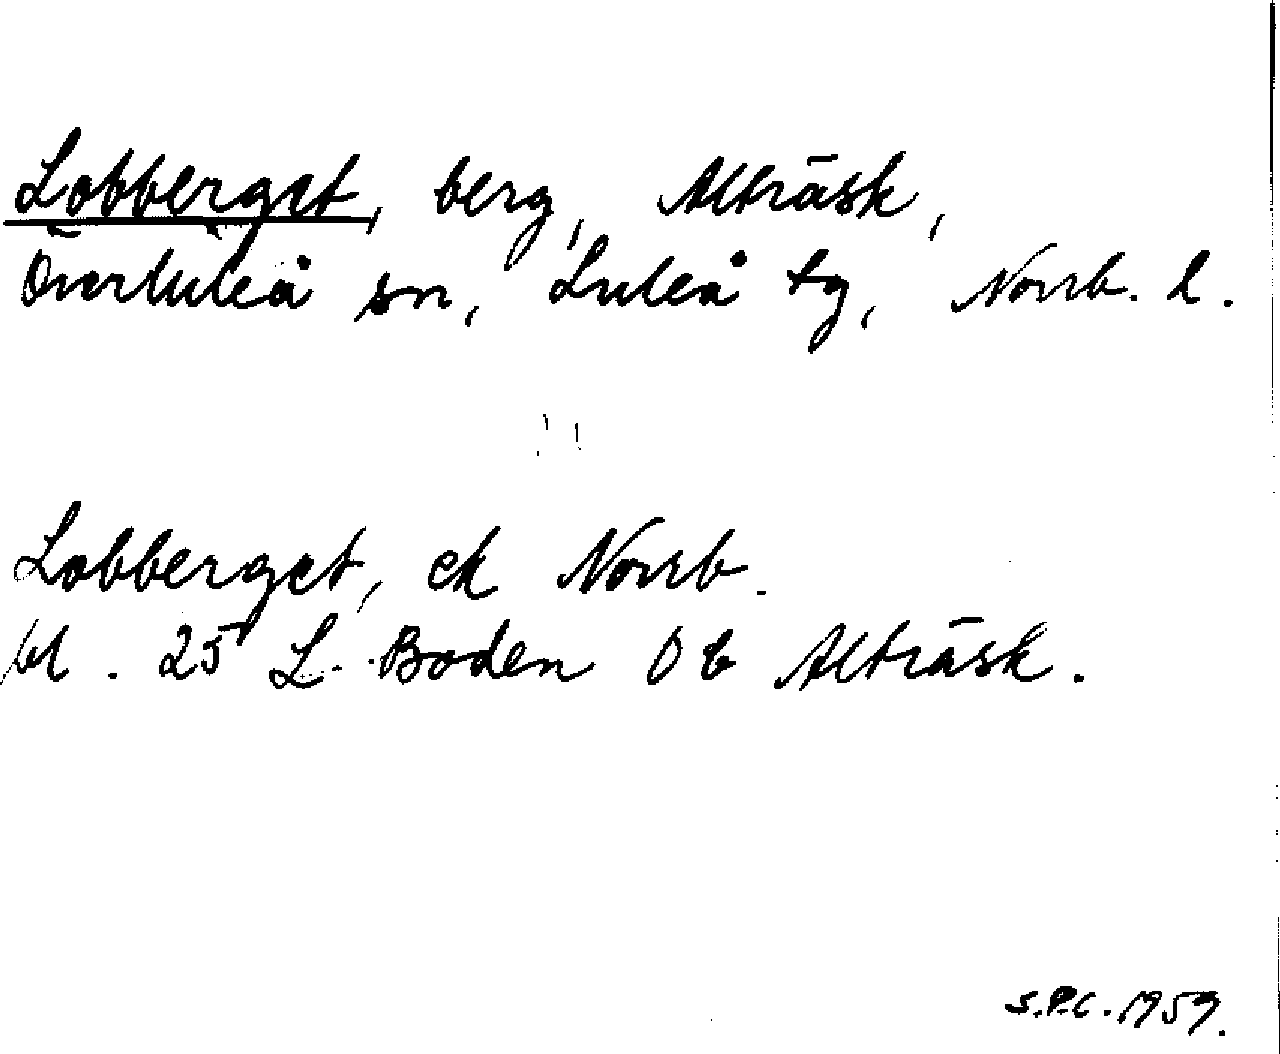 Lobberget, berg, Alträsk,
Överluleå sn, Luleå tg, Norrb. l.
Lobberget, ek Norrb.
bl. 25 L. Boden Ob Alträsk.
S.P.C. 1959.